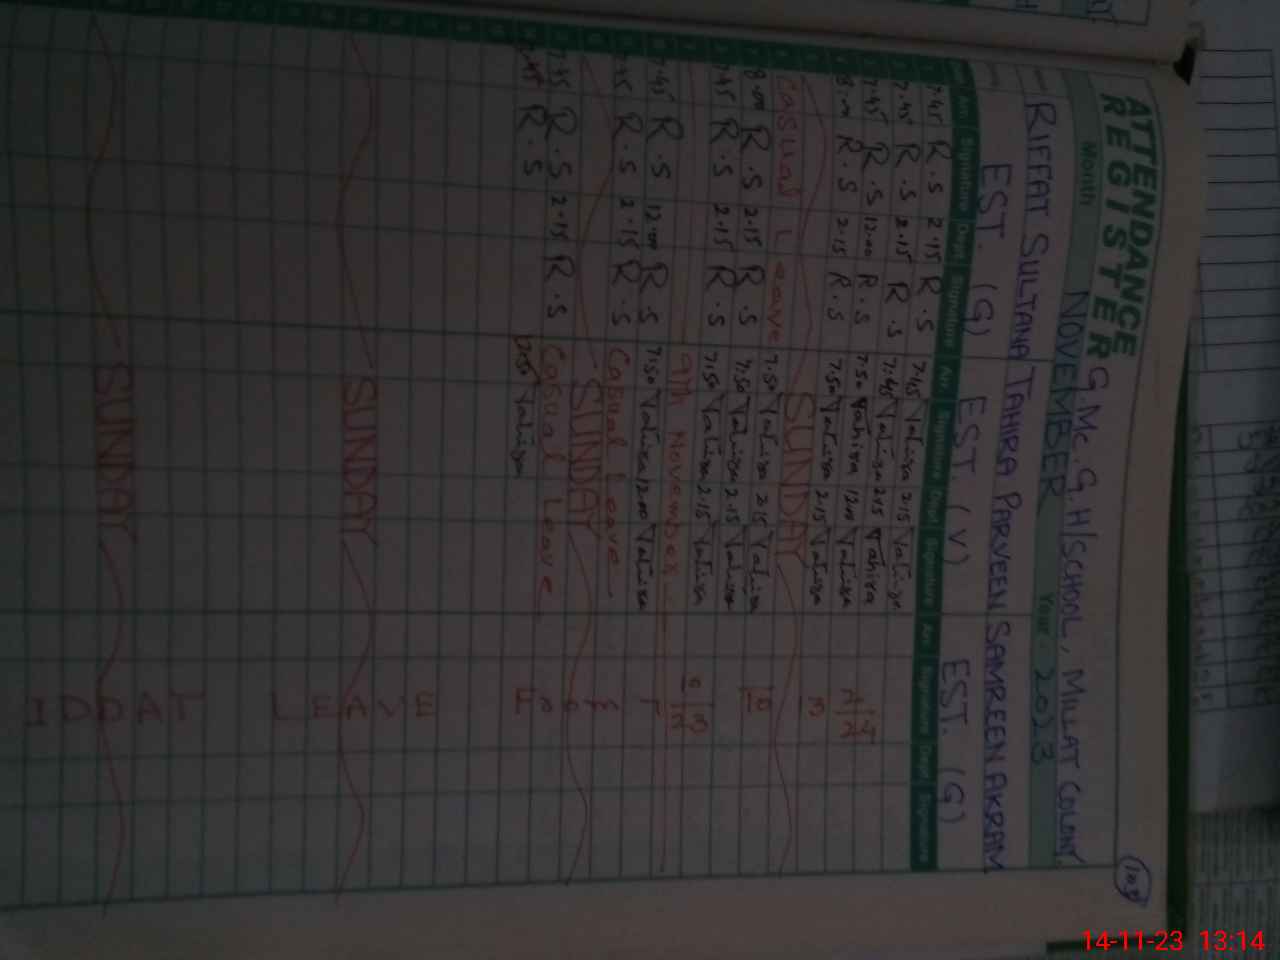 ATTENDANCE REGISTER
G.Mc.G.H/SCHOOL, MILLAT COLONY.
Month NOVEMBER Year 2023
RIFFAT SULTANA TAHIRA PARVEEN SAMREEN AKRAM
EST. (G) EST. (V) EST. (G)
Arr. Signature Dept Signature Arr. Signature Dept Signature Arr. Signature Dept Signature
7.45 R.S 2.15 R.S 7.45 Tahira 2.15 Tahira
7.45 R.S 2.15 R.S 7.45 Tahira 2.15 Tahira
7.45 R.S 12.00 R.S 7.50 Tahira 12.00 Tahira
8.00 R.S 2.15 R.S 7.50 Tahira 2.15 Tahira
SUNDAY
Casual Leave 7.50 Tahira 2.15 Tahira
8.00 R.S 2.15 R.S 7.50 Tahira 2.15 Tahira
7.45 R.S 2.15 R.S 7.50 Tahira 2.15 Tahira
9th November
7.45 R.S 12.00 R.S 7.50 Tahira 12.00 Tahira
7.45 R.S 2.15 R.S Casual Leave
SUNDAY
7.45 R.S 2.15 R.S Casual Leave
7.45 R.S 7.50 Tahira
LEAVE
SUNDAY
IDDAT
SUNDAY
14-11-23 13:14